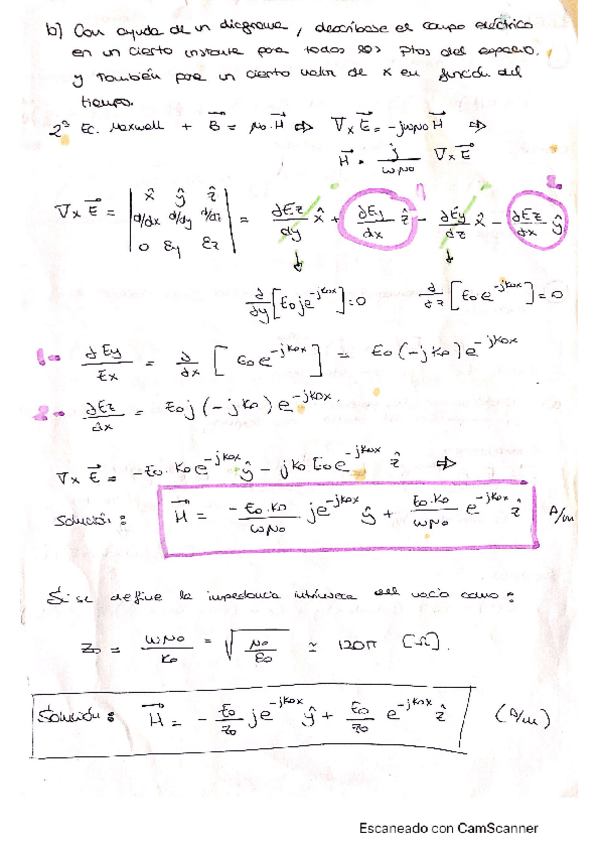 b) Con ayuda de un diagrama, descríbase el campo eléctrico
en un cierto instante para todos los ptos del espacio.
y también para un cierto valor de x en función del
tiempo.
2ª Ec. Maxwell + B⃗ = μ₀·H⃗ ⇒ ∇×E⃗ = -jωμ₀H⃗ ⇒
H⃗ = j/ωμ₀ ∇×E⃗
1 2
∇×E⃗ = | x̂ ŷ ẑ ; d/dx d/dy d/dz ; 0 Ey Ez | = ∂Ez/dy x̂ + ∂Ey/dx ẑ - ∂Ey/dz x̂ - ∂Ez/dx ŷ
∂/dy [E₀je^-jk₀x] = 0 ∂/dz [E₀e^-jk₀x] = 0
1- ∂Ey/Ex = ∂/dx [E₀e^-jk₀x] = E₀(-jk₀)e^-jk₀x
2- ∂Ez/dx = E₀j(-jk₀)e^-jk₀x.
∇×E⃗ = -E₀·k₀e^-jk₀x ŷ - jk₀E₀e^-jk₀x ẑ ⇒
Solución: H⃗ = -E₀·k₀/ωμ₀ je^-jk₀x ŷ + E₀·k₀/ωμ₀ e^-jk₀x ẑ A/m
Si se define la impedancia intrínseca del vacío como:
Z₀ = ωμ₀/k₀ = √(μ₀/ε₀) ≃ 120π [Ω].
Solución: H⃗ = - E₀/Z₀ je^-jk₀x ŷ + E₀/Z₀ e^-jk₀x ẑ (A/m)
Escaneado con CamScanner